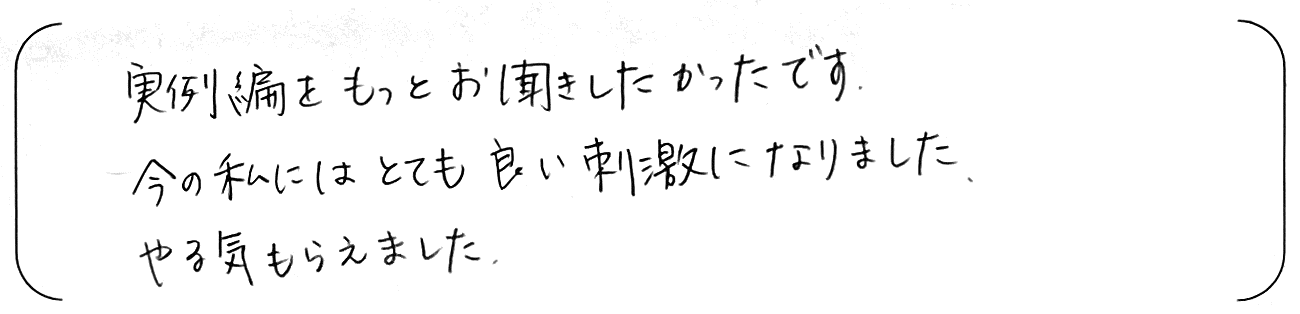 実例編をもっとお聞きしたかったです.
今の私にはとても良い刺激になりました、
やる気もらえました.